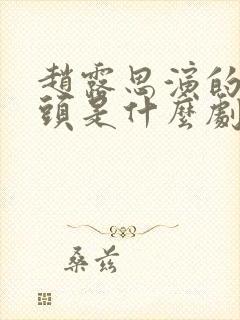 趙露思演的
頭是什麼劇
桑茲